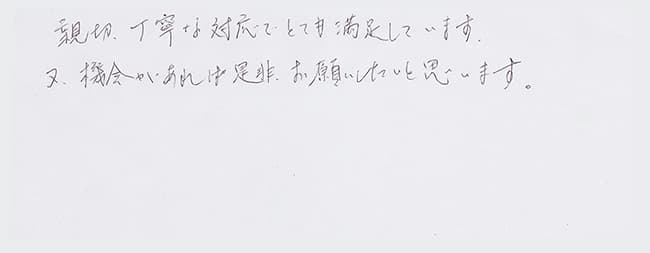 親切、丁寧な対応でとても満足しています。
又、機会があれば是非、お願いしたいと思います。